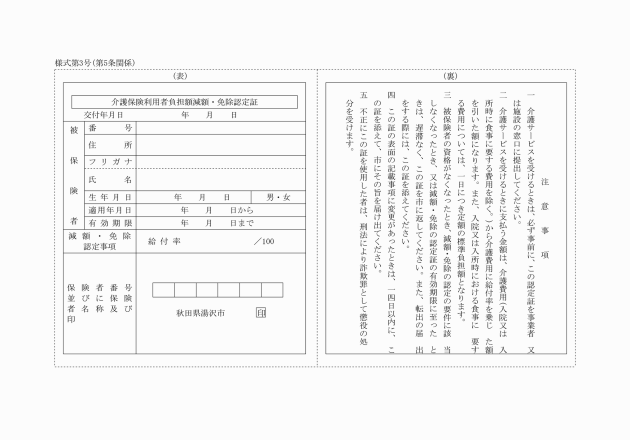 様式第3号(第5条関係)
(表)
介護保険利用者負担額減額・免除認定証
交付年月日 年 月 日
被保険者
番号
住所
フリガナ
氏名
生年月日 年 月 日 男・女
適用年月日 年 月 日から
有効期限 年 月 日まで
減額・免除
認定事項
給付率 /100
保険者番号
並びに保険
者名称及び
印
秋田県湯沢市 印
(裏)
注意事項
一 介護サービスを受けるときは、必ず事前に、この認定証を事業者又
は施設の窓口に提出してください。
二 介護サービスを受けるときに支払う金額は、介護費用(入院又は入
所時に食事に要する費用を除く。)から介護費用に給付率を乗じた額
を引いた額になります。また、入院又は入所時における食事に要す
る費用については、一日につき定額の標準負担額となります。
三 被保険者の資格がなくなったとき、減額・免除の認定の要件に該当
しなくなったとき、又は減額・免除の認定証の有効期限に至ったと
きは、遅滞なく、この証を市に返してください。また、転出の届出
をする際には、この証を添えてください。
四 この証の表面の記載事項に変更があったときは、一四日以内に、こ
の証を添えて、市にその旨を届け出てください。
五 不正にこの証を使用した者は、刑法により詐欺罪として懲役の処
分を受けます。